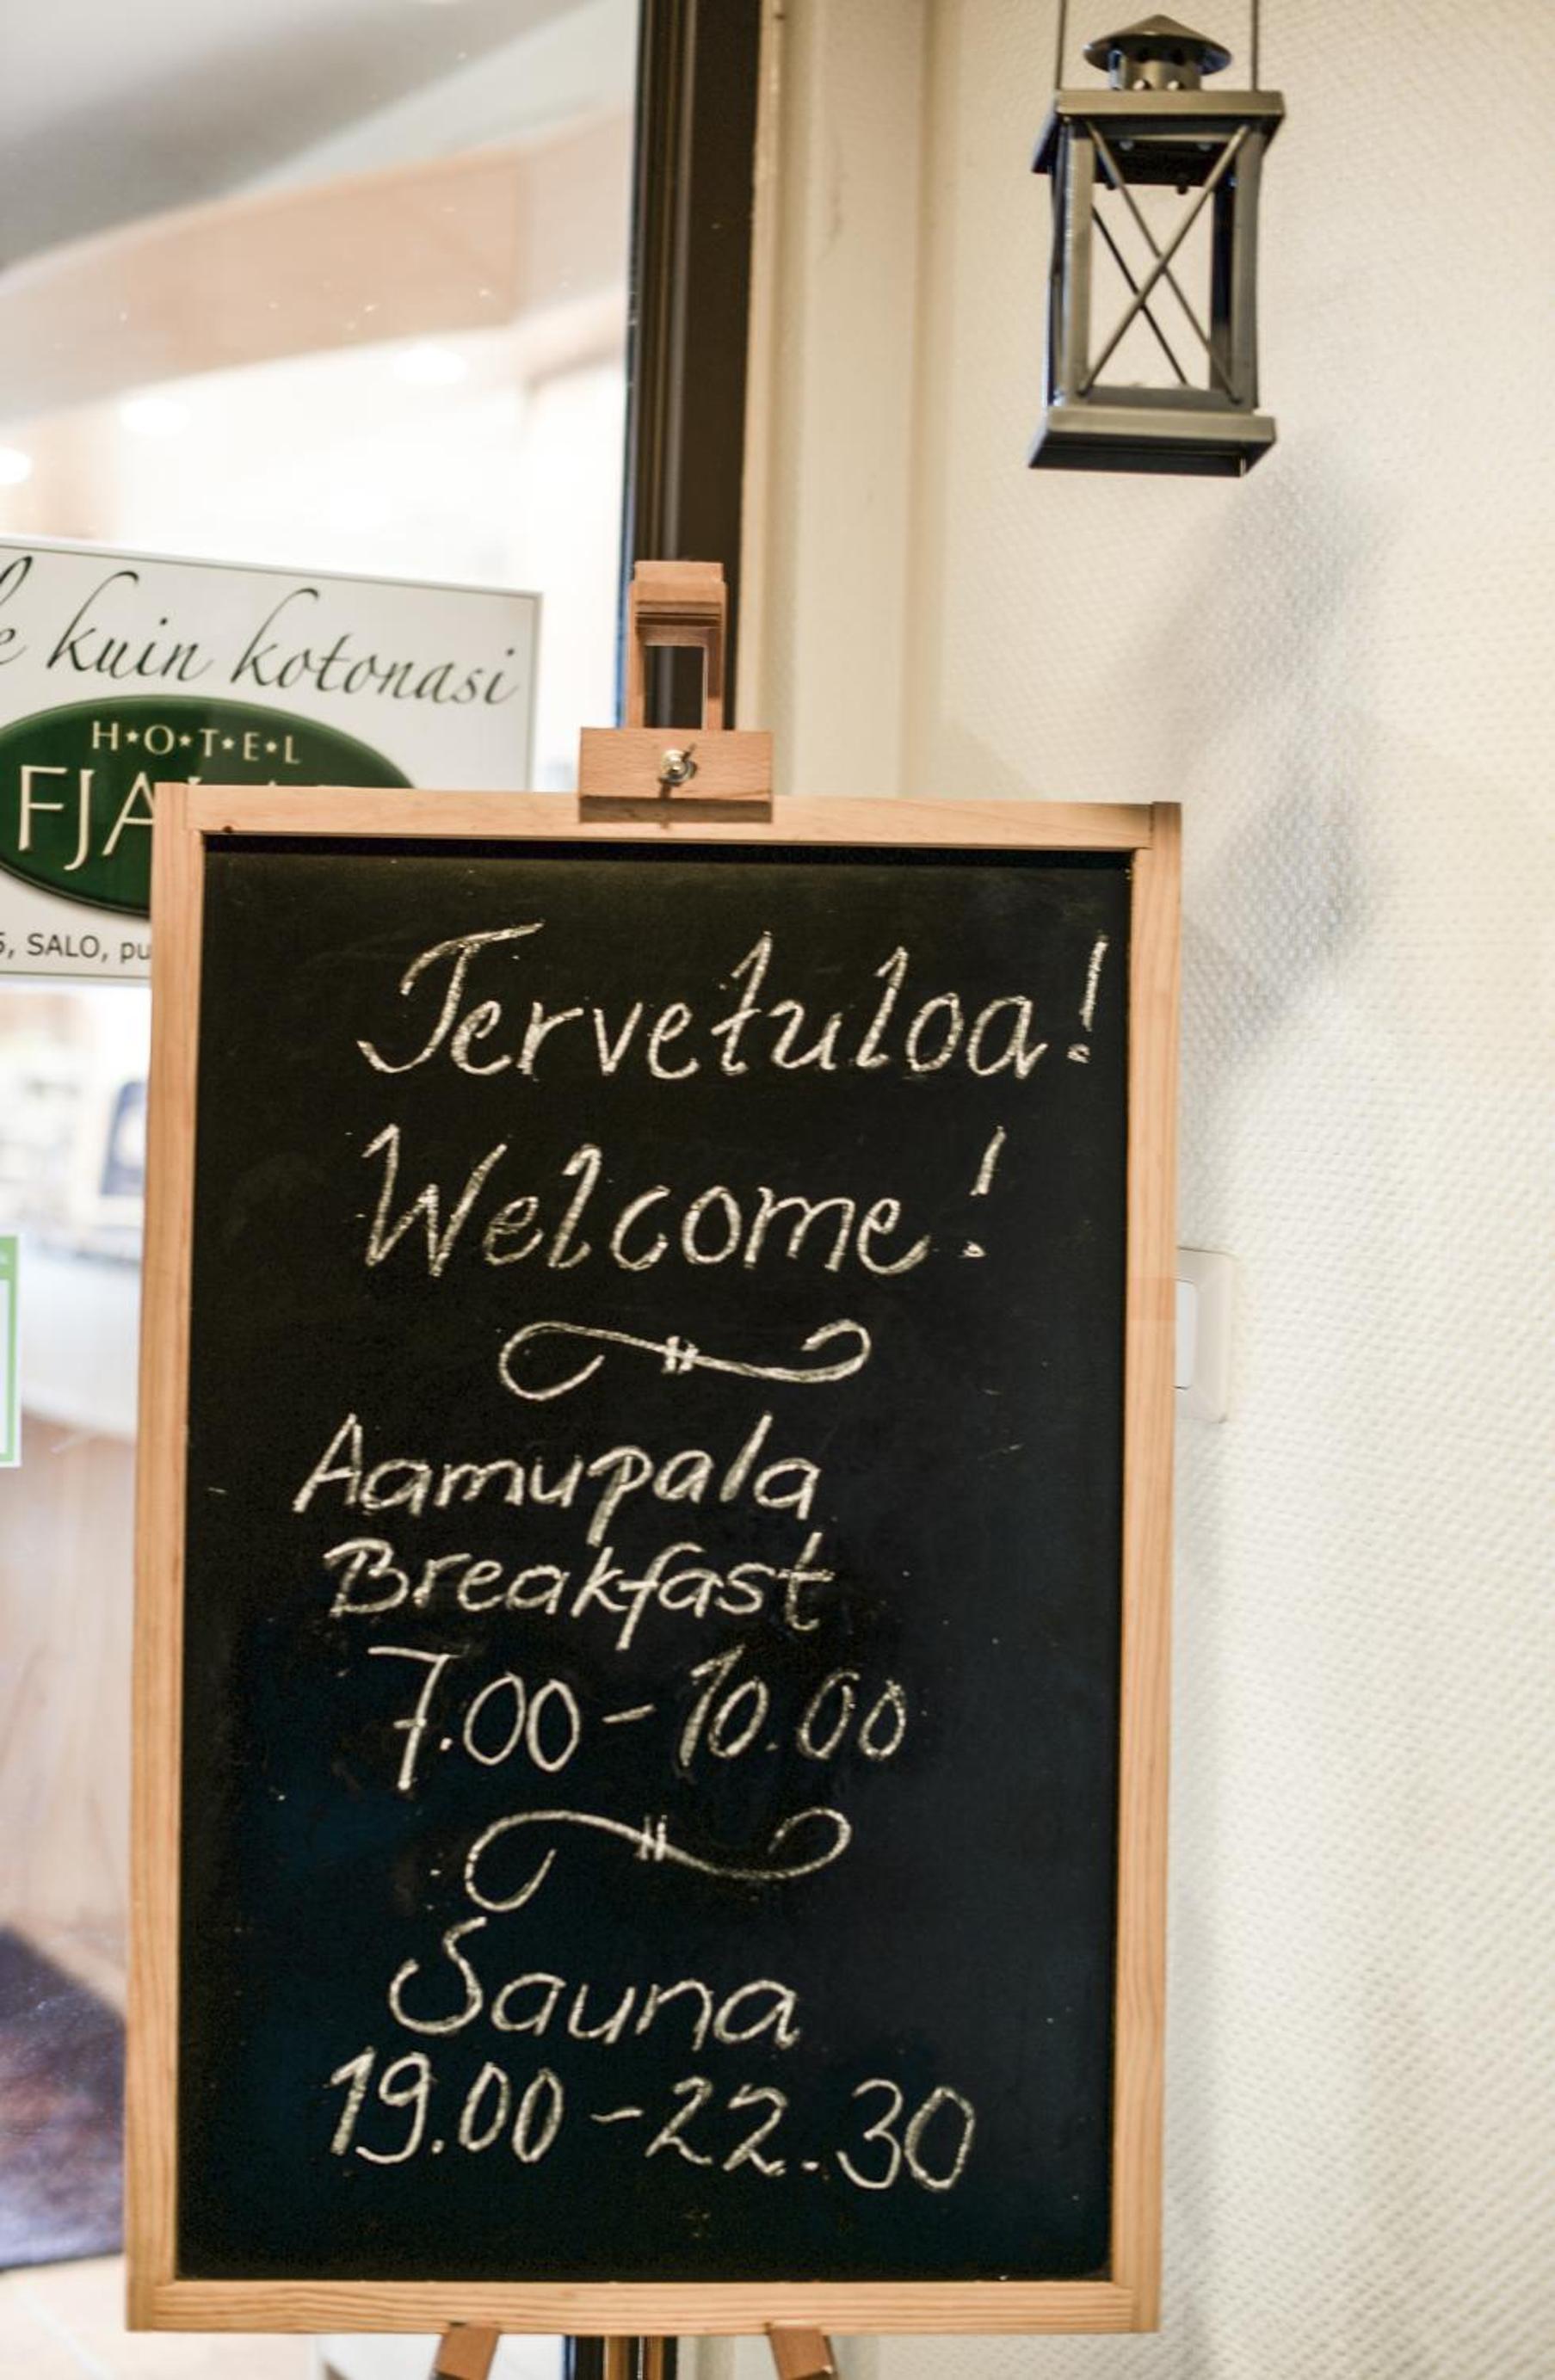 kuin kotonasi
H★O★T★E★L
FJA
SALO,
Tervetuloa!
Welcome!
Aamupala
Breakfast
7.00-10.00
Sauna
19.00-22.30